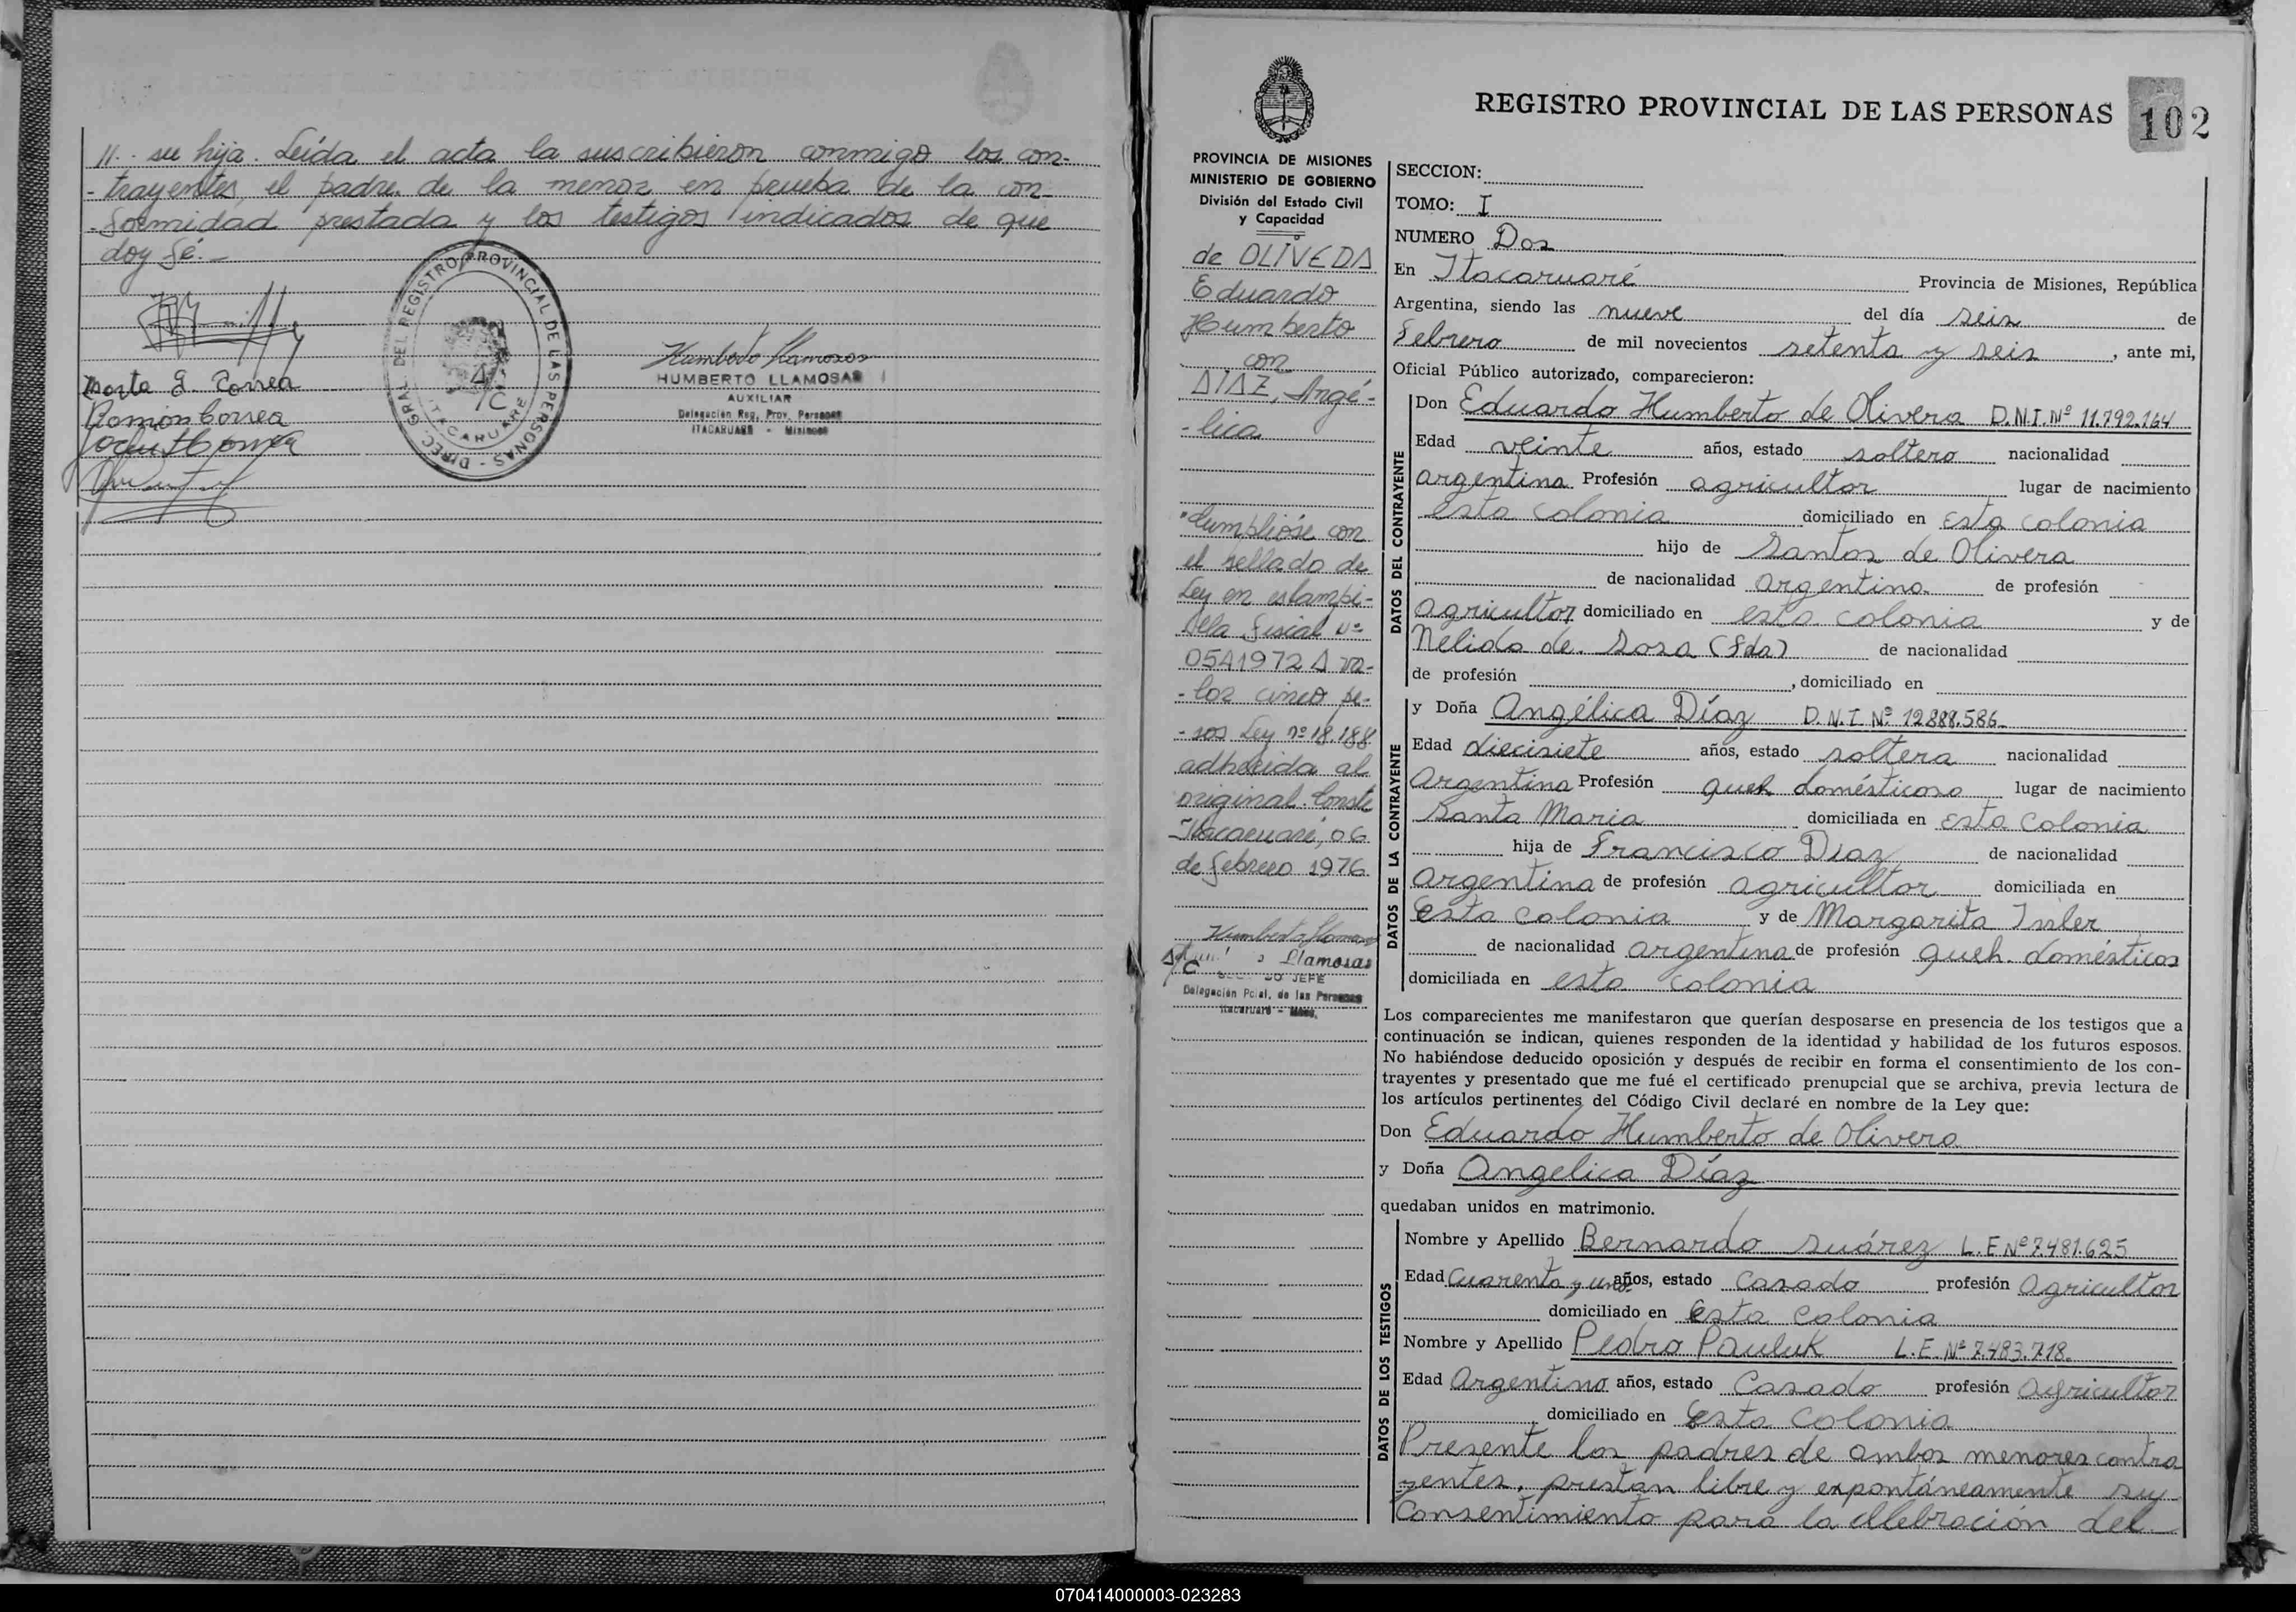 11.. su hija. Leída el acta la suscribieron conmigo los con-
- trayentes, el padre de la menor en prueba de la con-
- formidad prestada y los testigos indicados de que
doy fé.-
DIREC. GRAL. DEL REGISTRO PROVINCIAL DE LAS PERSONAS -
ITACARUARE
A/C
Humberto Llamosas
HUMBERTO LLAMOSAS
AUXILIAR
Delegación Reg. Prov. Personas
ITACARUARE - Misiones
Ramón Correa
REGISTRO PROVINCIAL DE LAS PERSONAS
102
PROVINCIA DE MISIONES
MINISTERIO DE GOBIERNO
División del Estado Civil
y Capacidad
de OLIVEDA
Eduardo
Humberto
con
DIAZ, Angé-
- lica
"Cumplióse con
el sellado de
Ley en estampi-
lla fiscal Nº
05A1972 A va-
- lor cinco pe-
- sos Ley nº 18.188
adherida al
original. Conste
Itacaruaré, 06
de febrero 1976
Humberto Llamosas
A/C
Llamosas
JEFE
Delegación Pcial. de las Personas
Itacaruaré - Mnes.
SECCION:
TOMO: I
NUMERO Dos
En Itacaruaré Provincia de Misiones, República
Argentina, siendo las nueve del día seis de
Febrero de mil novecientos setenta y seis, ante mi,
Oficial Público autorizado, comparecieron:
DATOS DEL CONTRAYENTE
Don Eduardo Humberto de Olivera D.N.I. Nº 11.792.164
Edad veinte años, estado soltero nacionalidad
argentina Profesión agricultor lugar de nacimiento
esta colonia domiciliado en esta colonia
hijo de Santos de Olivera
de nacionalidad argentino de profesión
agricultor domiciliado en esta colonia y de
Nelida de Sosa (fda) de nacionalidad
de profesión , domiciliado en
DATOS DE LA CONTRAYENTE
y Doña Angélica Díaz D.N.I. Nº 12.888.586.
Edad diecisiete años, estado soltera nacionalidad
Argentina Profesión queh domésticos lugar de nacimiento
Santa Maria domiciliada en esta colonia
hija de Francisco Diaz de nacionalidad
argentina de profesión agricultor domiciliada en
Esta colonia y de Margarita
de nacionalidad argentina de profesión queh. domésticos
domiciliada en esta colonia
Los comparecientes me manifestaron que querían desposarse en presencia de los testigos que a
continuación se indican, quienes responden de la identidad y habilidad de los futuros esposos.
No habiéndose deducido oposición y después de recibir en forma el consentimiento de los con-
trayentes y presentado que me fué el certificado prenupcial que se archiva, previa lectura de
los artículos pertinentes del Código Civil declaré en nombre de la Ley que:
Don Eduardo Humberto de Olivera
y Doña Angelica Díaz
quedaban unidos en matrimonio.
DATOS DE LOS TESTIGOS
Nombre y Apellido Bernardo Suárez L.E Nº 7.481.625
Edad Cuarenta y uno años, estado Casado profesión Agricultor
domiciliado en Esta colonia
Nombre y Apellido Pedro Pauluk L.E. Nº 7.483.718.
Edad Argentino años, estado Casado profesión Agricultor
domiciliado en Esta Colonia
Presente los padres de ambos menores contra
yentes, prestan libre y expontáneamente su
Consentimiento para la celebración del
070414000003-023283